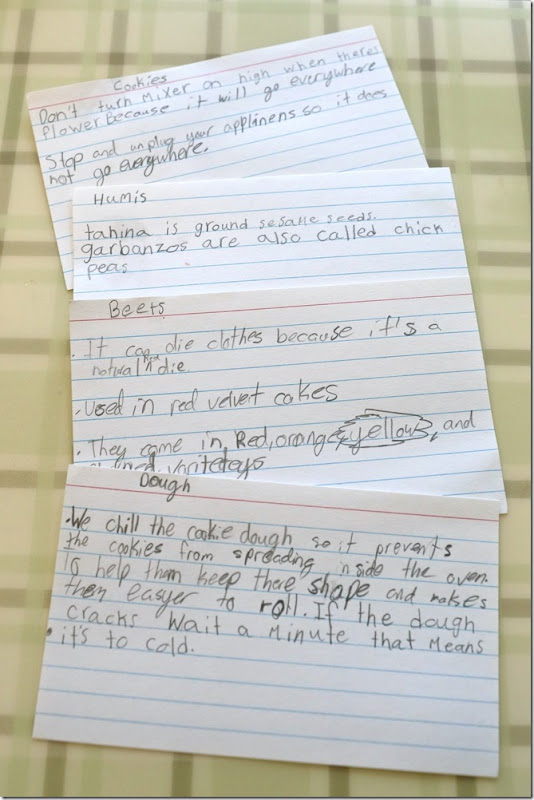 Cookies
Don't turn mixer on high when theres
flower. Because it will go everywhere
Stop and unplug your applinens so it does
not go everywhere.
Humis
tahina is ground sesame seeds.
garbanzos are also called chick
peas
Beets
• It can die clothes because it's a
natural die
• Used in red velvet cakes
• They come in Red, orange, yellow, and
Dough
• We chill the cookie dough so it prevents
the cookies from spreading inside the oven.
To help them keep there shape and makes
then easyer to roll. If the dough
cracks wait a minute that means
• it's to cold.